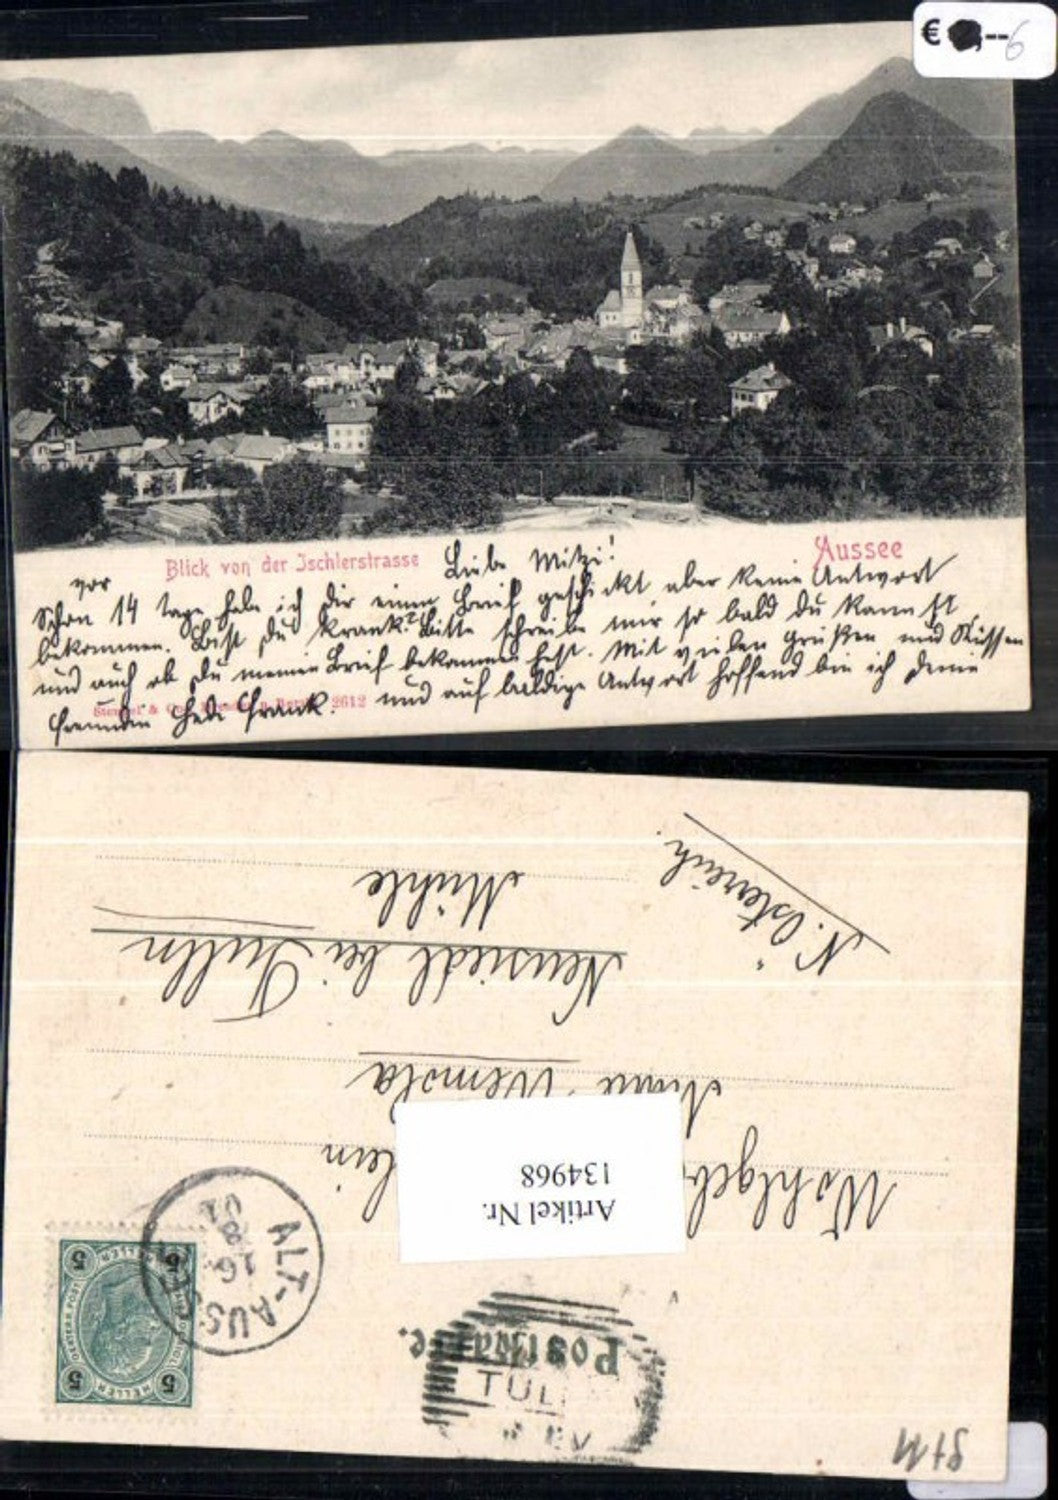 € --6
Blick von der Ischlerstrasse
Aussee
Liebe Mitzi!
vor
Schon 14 tage habe ich dir einen Brief geschickt aber keine Antwort
bekommen. Bist du krank? Bitte schreibe mir so bald du kannst
und auch ob du meinen Brief bekommen hast. Mit vielen Grüßen und Küssen
und auf baldige Antwort hoffend bin ich deine
Freundin Frank.
2612
Postkarte.
ALT-AUS
16
8
01
TUL
5 5
HELLER HELLER
5 5
Artikel Nr.
134968
Wohlgeb lein
Neusiedl bei Tulln
Mühle
N. Österreich.